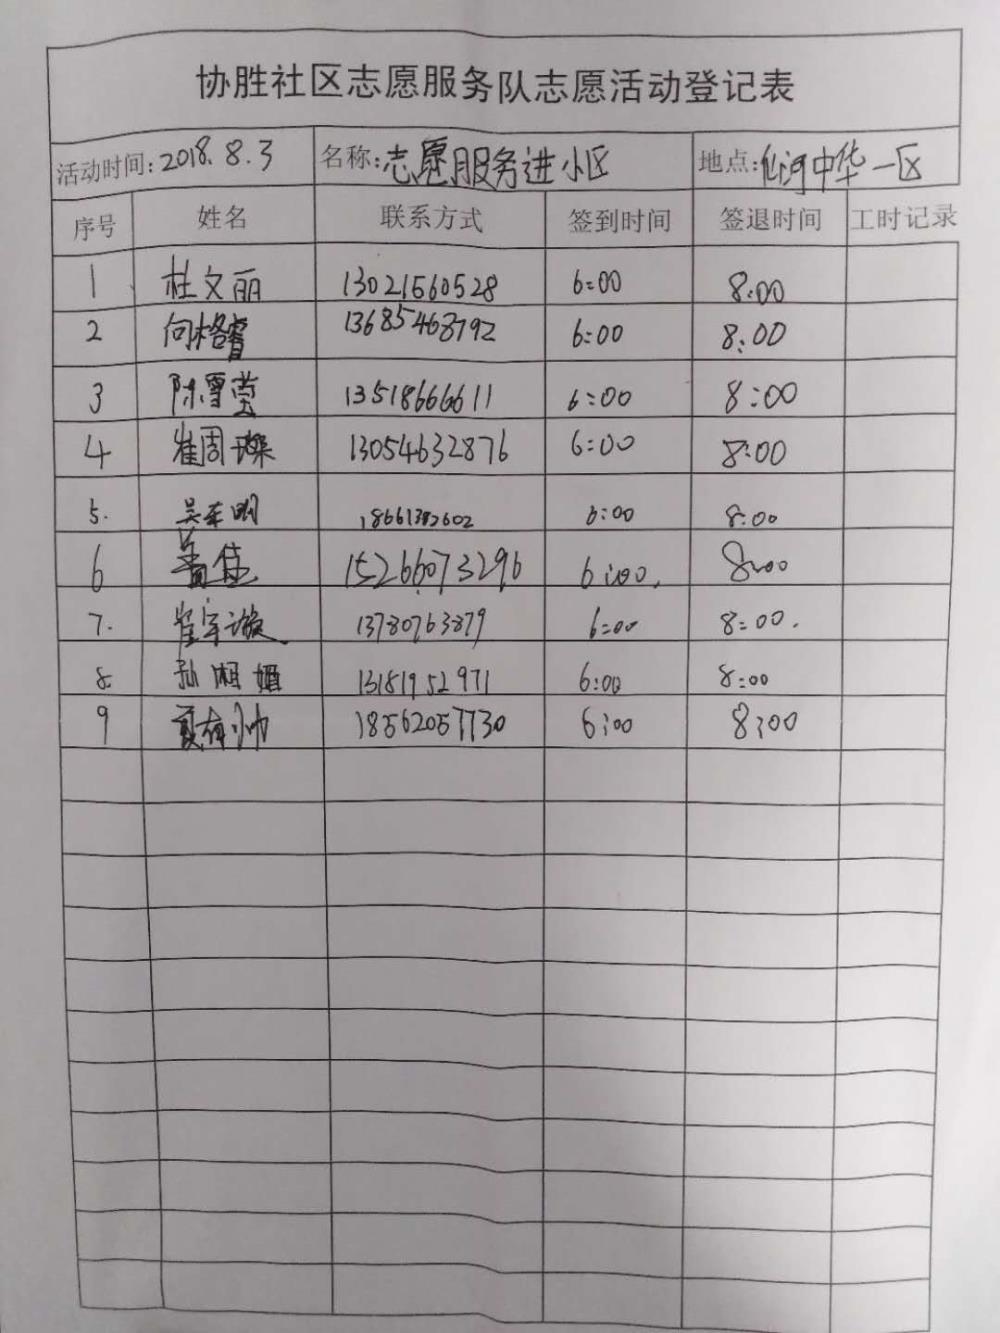 协胜社区志愿服务队志愿活动登记表
活动时间:2018.8.3 名称:志愿服务进小区 地点:仙河中华一区
序号 姓名 联系方式 签到时间 签退时间 工时记录
1 杜文丽 13021560528 6:00 8:00
2 向格睿 13685468792 6:00 8:00
3 陈雪莹 13518666611 6:00 8:00
4 崔周璨 13054632876 6:00 8:00
5. 吴东明 18661382602 6:00 8:00
6 董佳 15266073296 6:00. 8:00
7. 崔宇璇 13780763879 6:00 8:00.
8 孙湘媚 13181952971 6:00 8:00
9 夏有帅 18562057730 6:00 8:00